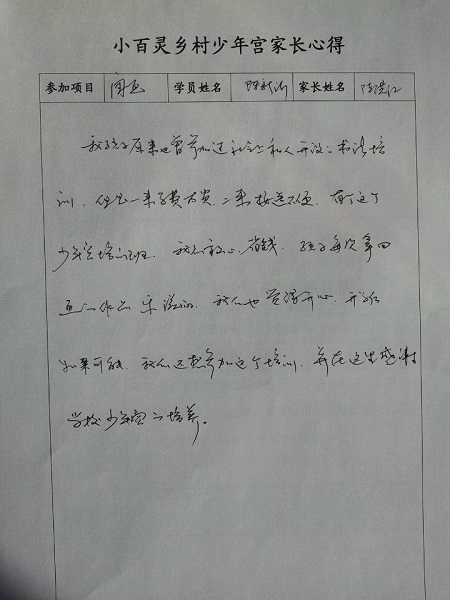 小百灵乡村少年宫家长心得
参加项目 国画 学员姓名 家长姓名 陈洪江
我孩子原来也曾参加过社会上私人开设的书法培
训,但是一来学费太贵,二来接送不便,有了这个
少年宫培训班,我们放心,省钱,孩子每次拿回
画的作品 乐滋滋的,我们也觉得开心,开学后
如果可能,我们还想参加这个培训,并在这里感谢
学校少年宫的培养。